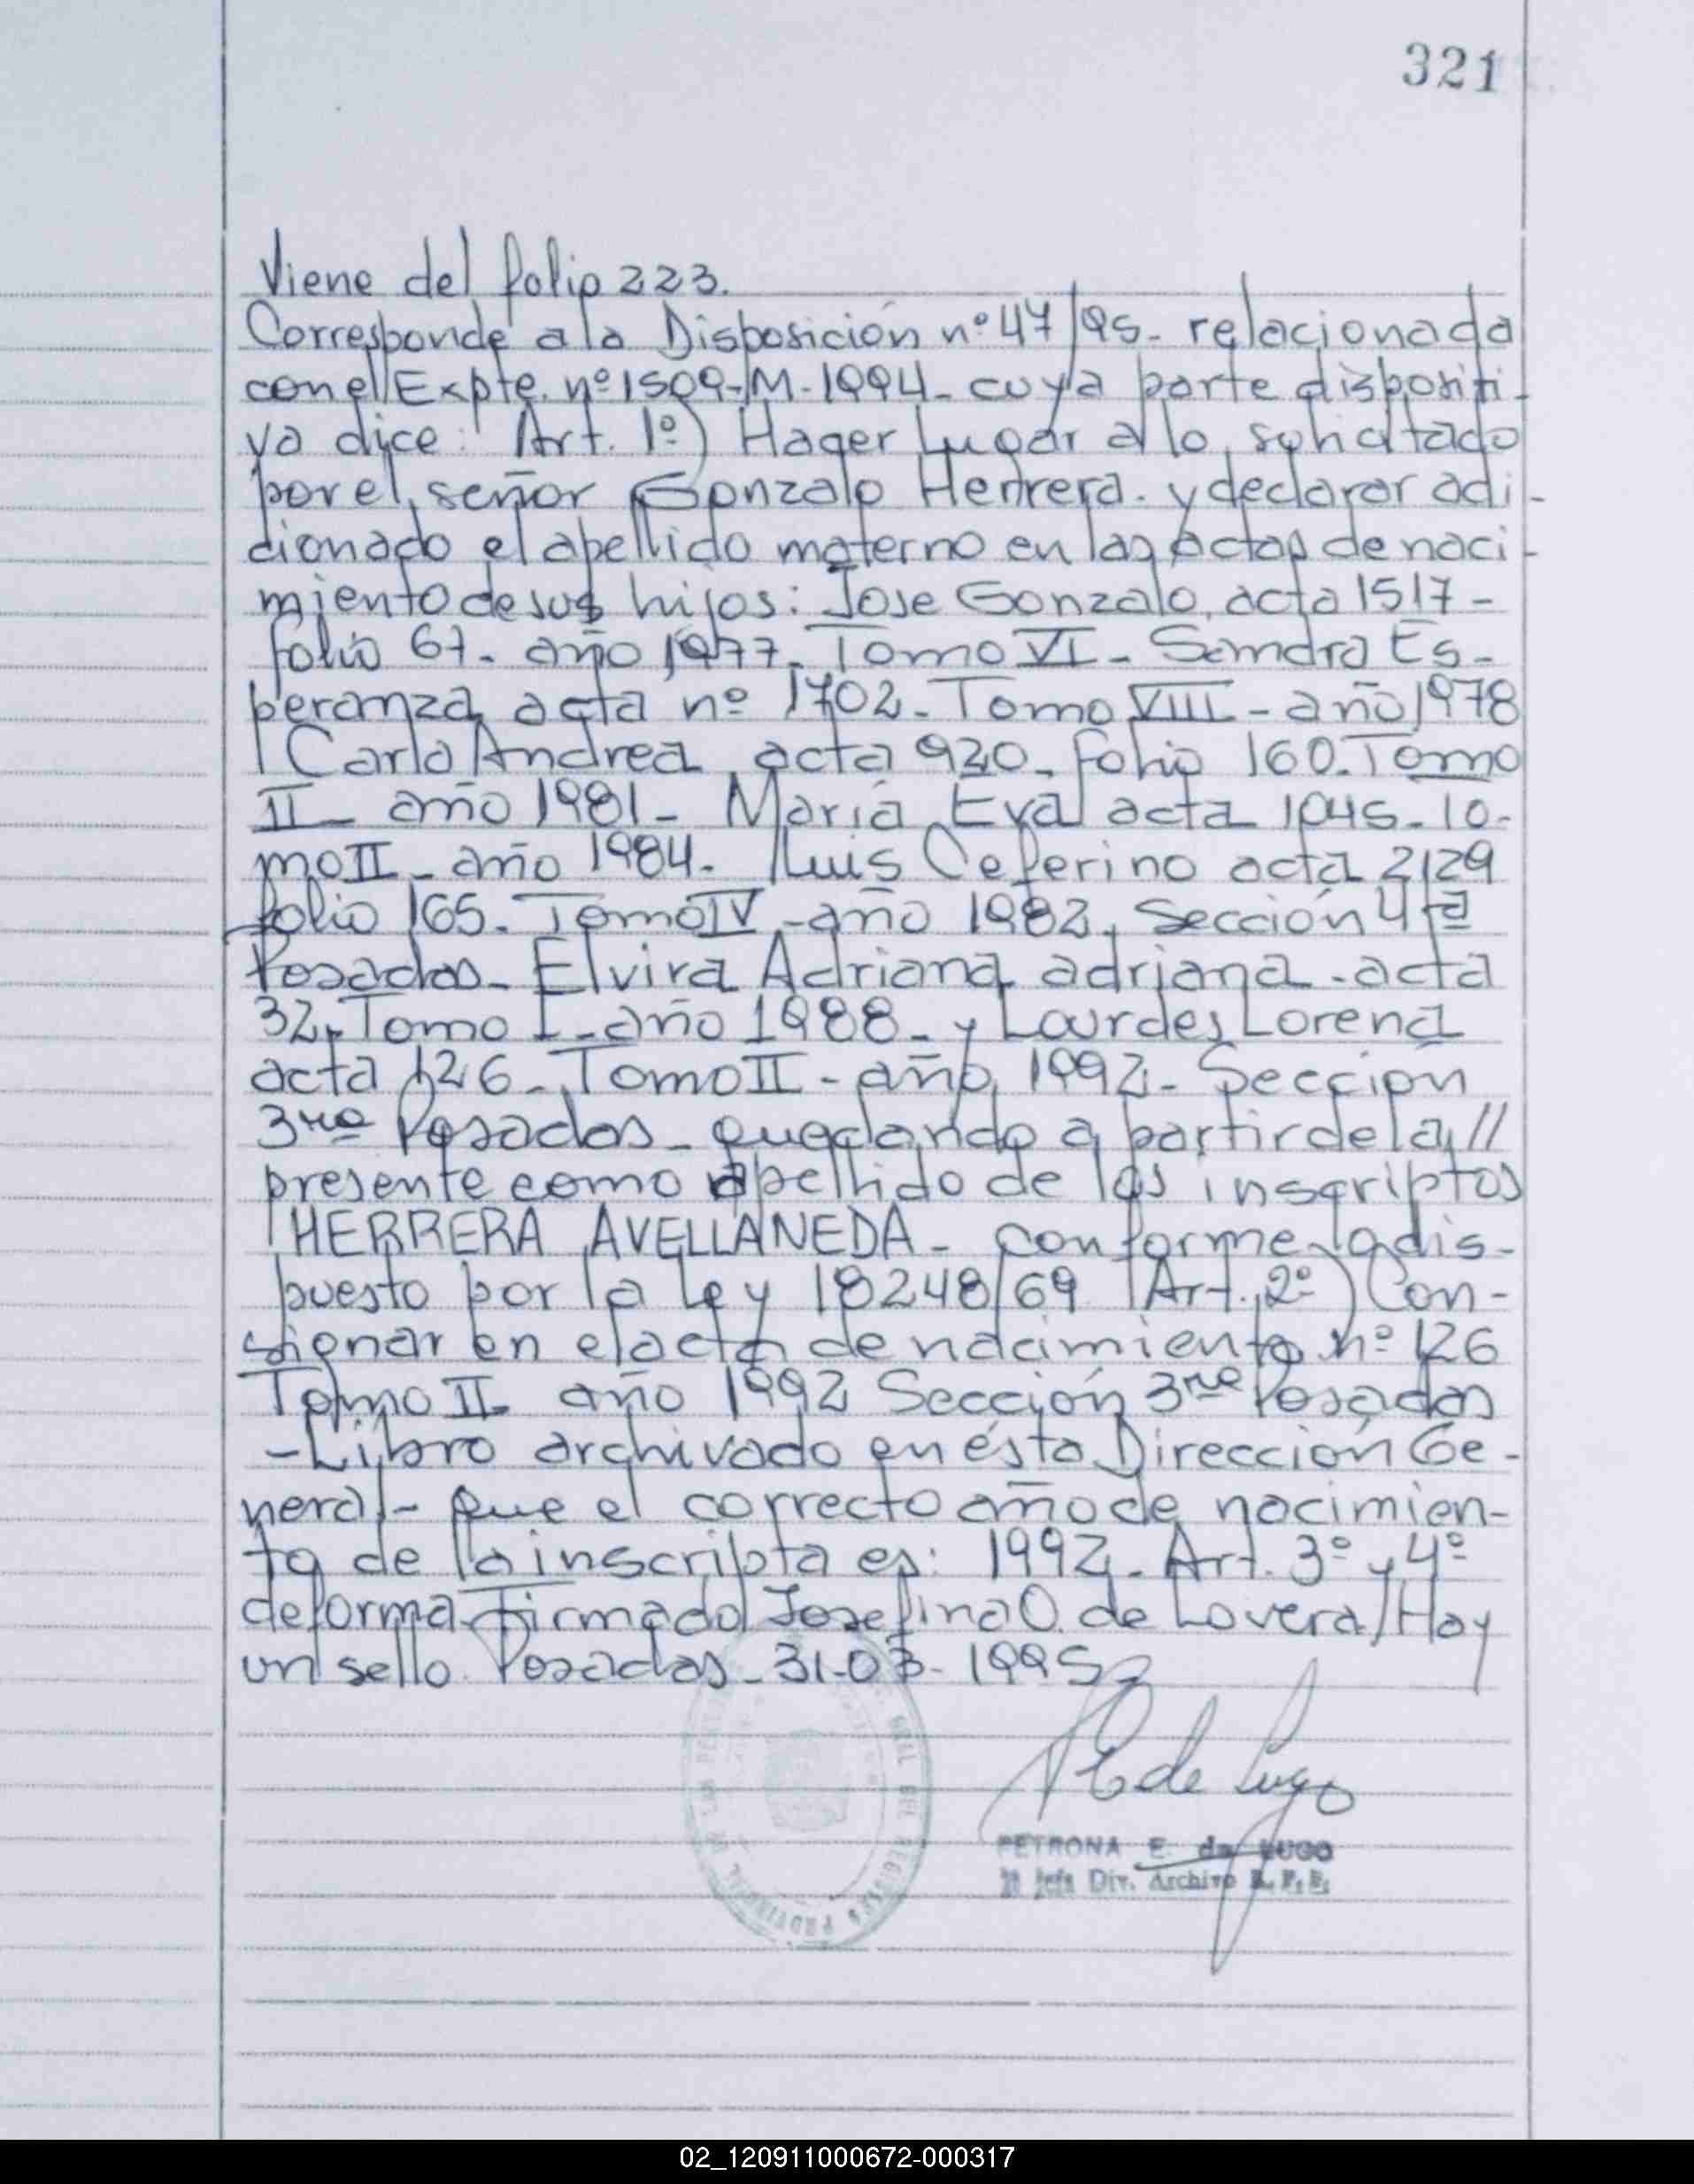 321
Viene del folio 223.
Corresponde a la Disposición nº 47/95- relacionada
con el Expte. nº 1509-M-1994- cuya parte dispositi-
va dice: Art. 1º) Hager Lugar a lo solicitado
por el señor Gonzalo Herrera. y declarar adi-
cionado el apellido materno en las actas de naci-
miento de sus hijos: Jose Gonzalo, acta 1517-
folio 67- año 1977- Tomo VI- Sandra Es-
peranza acta nº 1702- Tomo VIII- año 1978
Carla Andrea acta 920- folio 160. Tomo
II- año 1981- María Eva acta 1045- To-
mo II- año 1984- Luis Ceferino acta 2129
folio 165. Tomo IV- año 1982, Sección 4ta
Posadas- Elvira Adriana adriana- acta
32, Tomo I- año 1988- y Lourdes Lorena
acta 126- Tomo II- año 1992- Sección
3ra Posadas- quedando a partir de la //
presente como apellido de los inscriptos
HERRERA AVELLANEDA- conforme lo dis-
puesto por la Ley 18248/69 Art. 2º) Con-
signar en el acta de nacimiento nº 126
Tomo II- año 1992 Sección 3ra Posadas
-Libro archivado en ésta Dirección Ge-
neral- que el correcto año de nacimien-
to de la inscripta es: 1992- Art. 3º y 4º
de forma- Firmado Josefina O. de Lovera/Hay
un sello. Posadas- 31-03-1995
P E de Lugo
PETRONA E. de LUGO
Jefa Div. Archivo
02_120911000672-000317